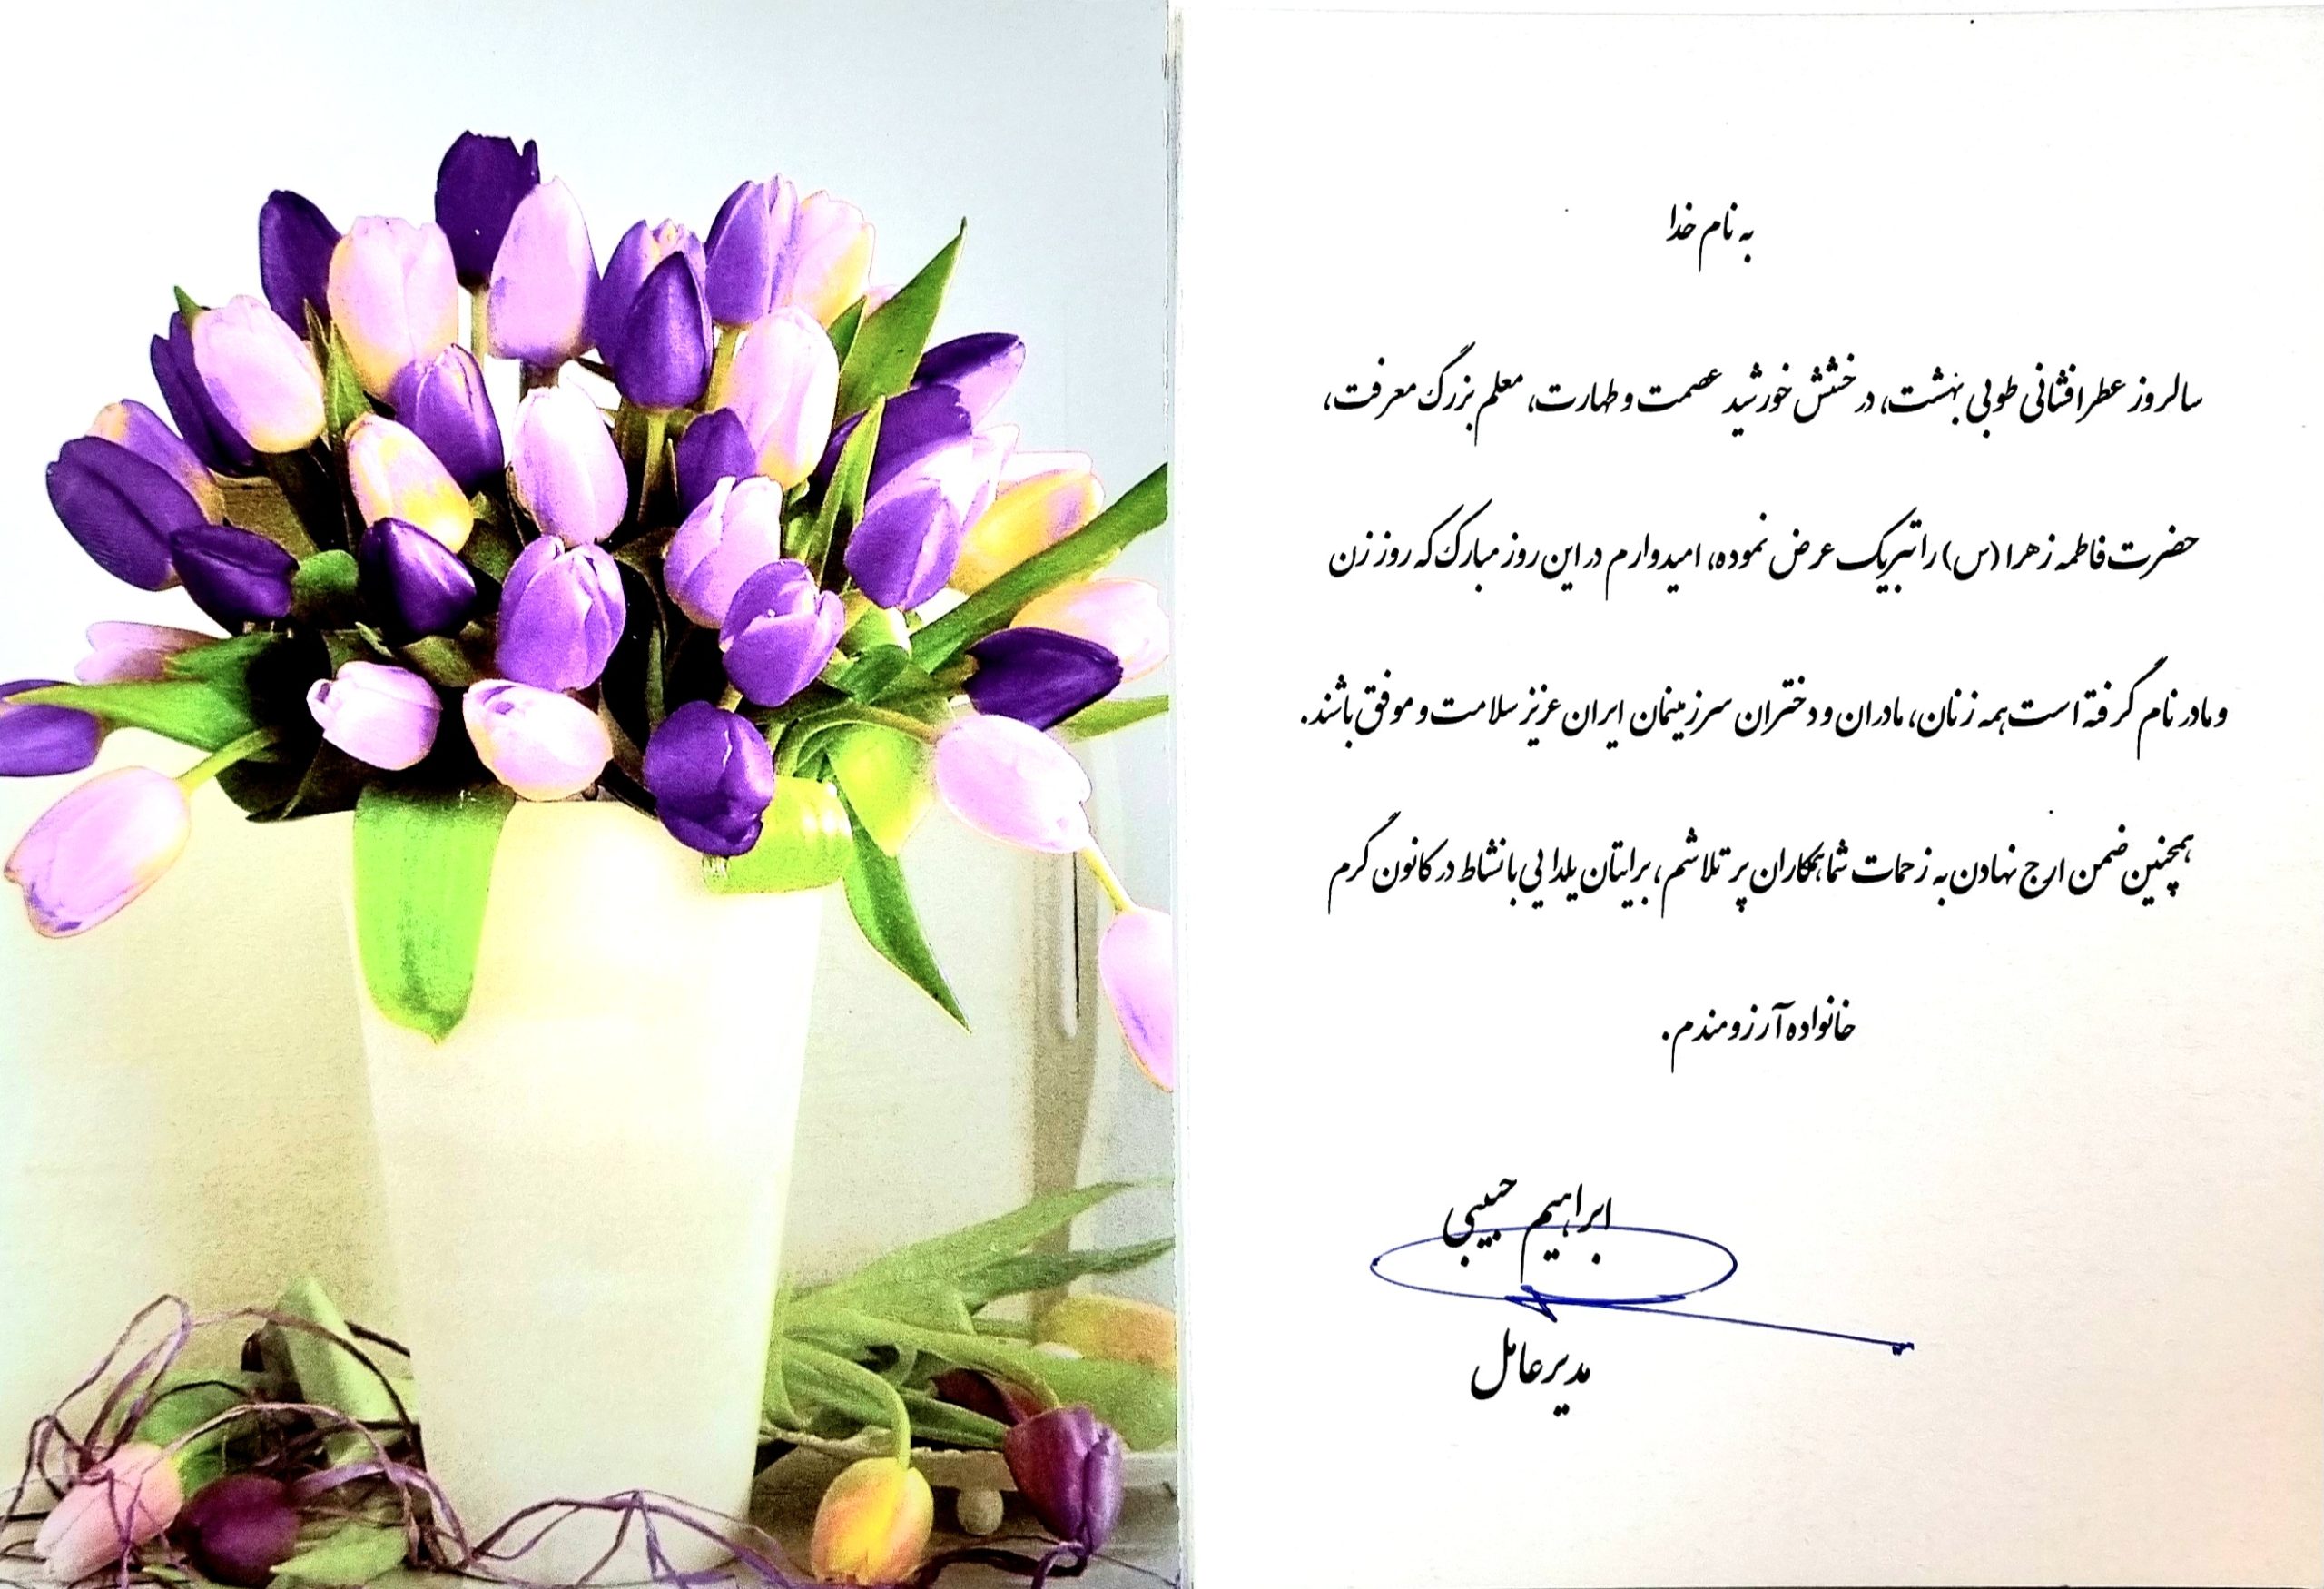 به نام خدا
سالروز عطرافشانی طوبی بهشت، درخشش خورشید عصمت و طهارت، معلم بزرگ معرفت،
حضرت فاطمه زهرا (س) را تبریک عرض نموده، امیدوارم در این روز مبارک که روز زن
و مادر نام گرفته است همه زنان، مادران و دختران سرزمینمان ایران عزیز سلامت و موفق باشند.
همچنین ضمن ارج نهادن به زحمات شما همکاران پر تلاشم، برایتان یلدایی با نشاط در کانون گرم
خانواده آرزومندم.
ابراهیم حبیبی
مدیرعامل